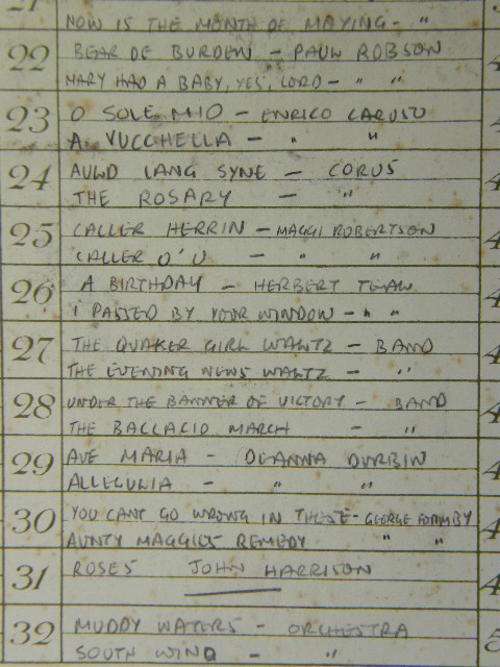 21
NOW IS THE MONTH OF MAYING - "
22 BEAR DE BURDEN - PAUW ROBSON
MARY HAD A BABY, YES, LORD - " "
23 O SOLE MIO - ENRICO CARUSO
A VUCCHELLA - " "
24 AUWD LANG SYNE - CORUS
THE ROSARY - "
25 CALLER HERRIN - MAGGI ROBERTSON
CALLER O'U - " "
26 A BIRTHDAY - HERBERT TEAW
I PASSED BY YOUR WINDOW - " "
27 THE QUAKER GIRL WALTZ - BAND
THE EVENING NEWS WALTZ - "
28 UNDER THE BANNER OF VICTORY - BAND
THE BACCACIO MARCH - "
29 AVE MARIA - DEANNA DURBIN
ALLEGUNIA - " "
30 YOU CANT GO WRONG IN THESE - GEORGE FORMBY
AUNTY MAGGIES REMEDY " "
31 ROSES JOHN HARRISON
32 MUDDY WATERS - ORCHESTRA
SOUTH WIND - "